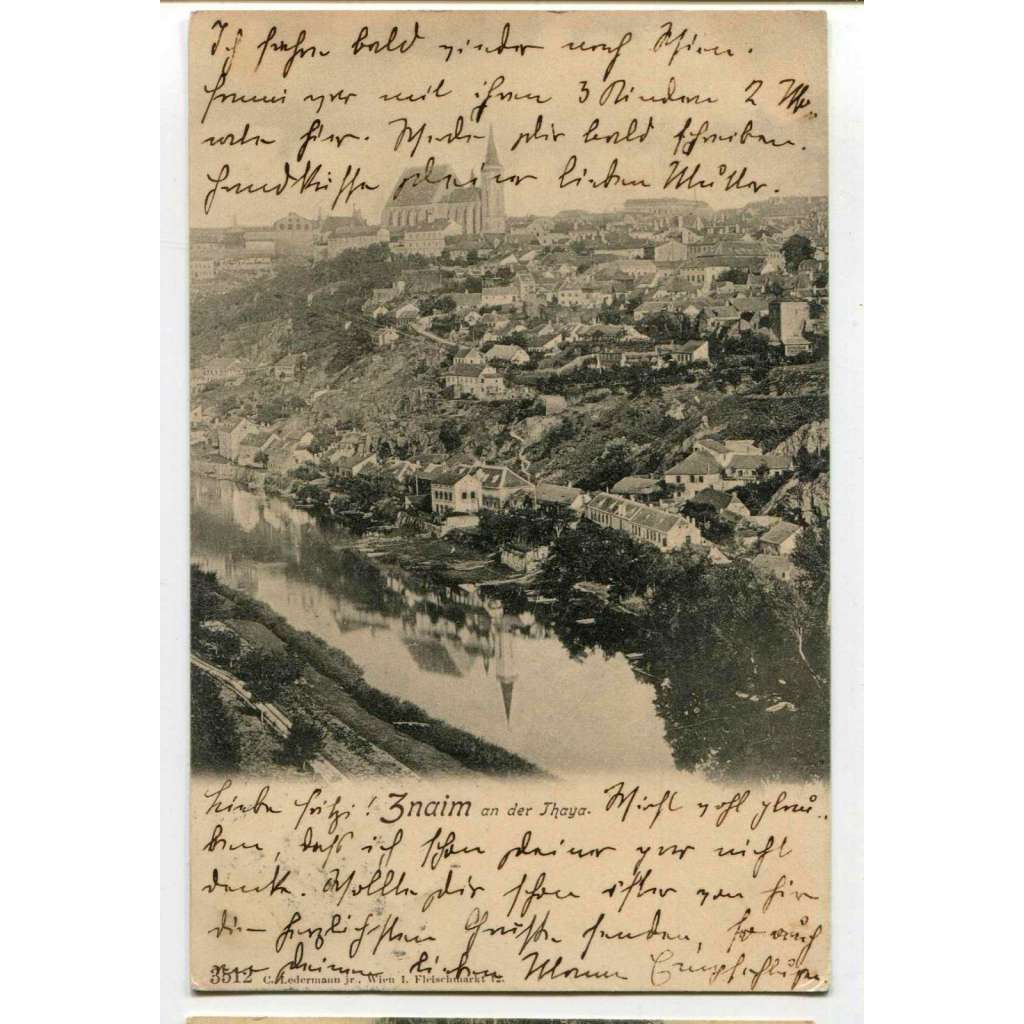 Ich fahre bald wieder nach Wien.
Fanni war mit ihren 3 Kindern 2 Mo-
nate hier. Werde Dir bald schreiben.
Handküsse Deiner lieben Mutter.
Liebe Fritzi! Znaim an der Thaya. Wirst wohl glau-
ben, dass ich schon Deiner gar nicht
denke. Wollte Dir schon öfter von hier
die herzlichsten Grüsse senden, so auch
Deiner lieben Mama
3512 C. Ledermann jr., Wien I. Fleischmarkt 12.